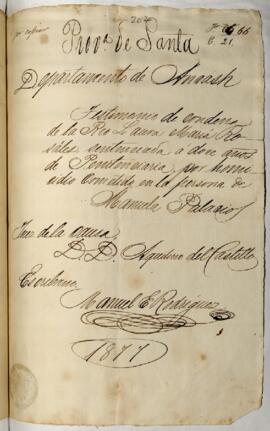 202
66
C. 21.
Prova. de Santa
Departamento de Ancash
Testimonio de condena
de la Reo Laura Maria
sentenciada a doce años
de Penitenciaria, por homi
cidio Cometido en la persona de
Manuela Palacios
Juez de la causa
D. D. Aquilino del Castillo
Escribano
Manuel E. Rodriguez
1877